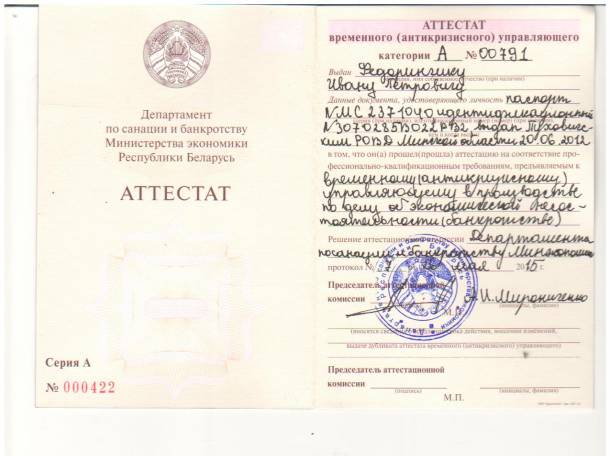 Департамент
по санации и банкротству
Министерства экономики
Республики Беларусь
АТТЕСТАТ
Серия А
№ 000422
АТТЕСТАТ
временного (антикризисного) управляющего
категории А №00791
Выдан Федоринчику
Ивану Петровичу
Данные документа, удостоверяющего личность паспорт
идентификационный
Минской области 20.06.2012
в том, что он(а) прошел(прошла) аттестацию на соответствие про-
фессионально-квалификационным требованиям, предъявляемым к
временному (антикризисному)
управляющему в производстве
по делу об экономической несос-
тоятельности (банкротстве)
Решение аттестационной комиссии Департамента
по санации и банкротству Минэкономики
протокол № мая 2015 г.
Председатель аттестационной
комиссии И. Мирониченко
М.П.
выдаче дубликата аттестата временного (антикризисного) управляющего)
Председатель аттестационной
комиссии
(подпись) (инициалы, фамилия)
М.П.